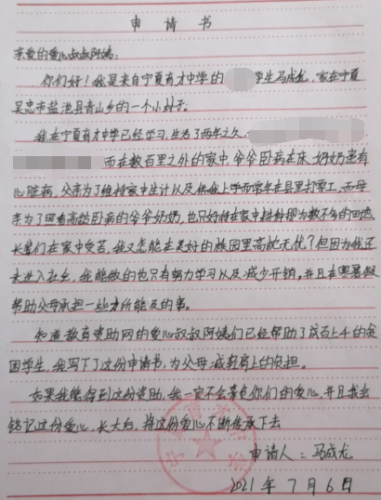 申请书
亲爱的爱心叔叔阿姨:
你们好!我是来自宁夏育才中学的 学生马成龙,家在宁夏
吴忠市盐池县青山乡的一个小村子。
我在宁夏育才中学已经学习、生活了两年之久,
而在数百里之外的家中爷爷因病在床,奶奶患有
心脏病,父亲为了维持家中生计以及供我上学而常年在县里打零工,而母
亲为了照看高龄因病的爷爷奶奶,也只好待在家中耕种那为数不多的田地
长辈们在家中受苦,我又怎能在美好的校园里高枕无忧?但因为我还
未进入社会,我能做的也只有努力学习以及减少开销,并且在寒暑假
帮助父母承担一些力所能及的事。
知道教育资助网的爱心叔叔阿姨们已经帮助了成百上千的贫
困学生,我写下了这份申请书,为父母减轻肩上的负担。
如果我能得到这份资助,我一定不会辜负你们的爱心,并且我会
铭记这份爱心,长大后,将这份爱心不断传承下去
申请人:马成龙
2021年7月6日